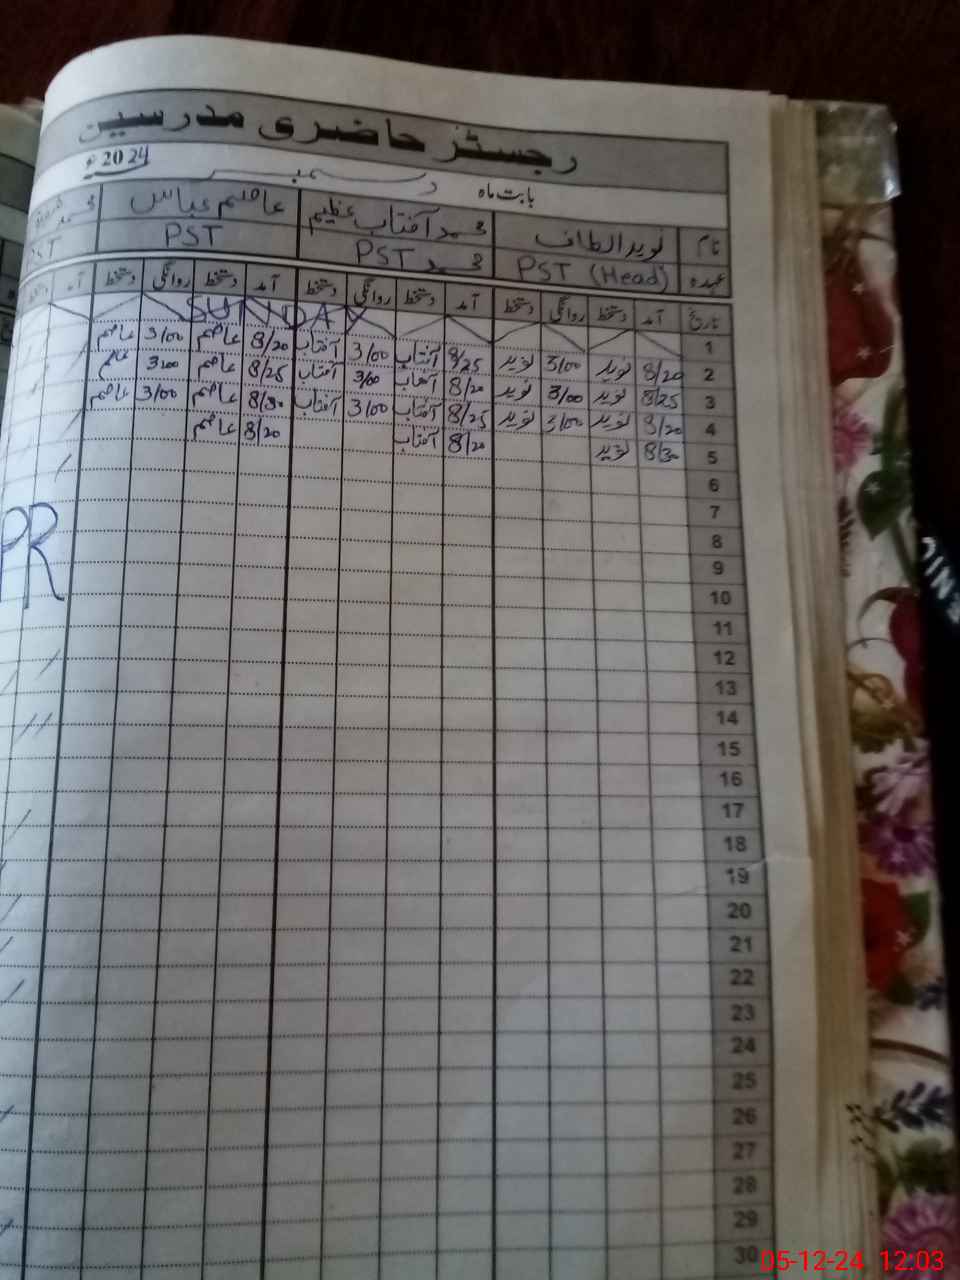 رجسٹر حاضری مدرسین
بابت ماہ دسمبر 2024ء
نام نوید الطاف محمد آفتاب عظیم عاصم عباس محمد
عہدہ PST (Head) PST PST PST
تاریخ آمد دستخط روانگی دستخط آمد دستخط روانگی دستخط آمد دستخط روانگی دستخط آمد دستخط
1 SUNDAY
2 8/20 نوید 3/00 نوید 8/25 آفتاب 3/00 آفتاب 8/20 عاصم 3/00 عاصم
3 8/25 نوید 3/00 نوید 8/20 آفتاب 3/00 آفتاب 8/25 عاصم 3/00 عاصم
4 8/20 نوید 3/00 نوید 8/25 آفتاب 3/00 آفتاب 8/30 عاصم 3/00 عاصم
5 8/30 نوید 8/20 آفتاب 8/20 عاصم
6
7
8
9
PR
10
11
12
13
14
15
16
17
18
19
20
21
22
23
24
25
26
27
28
29
30
05-12-24 12:03